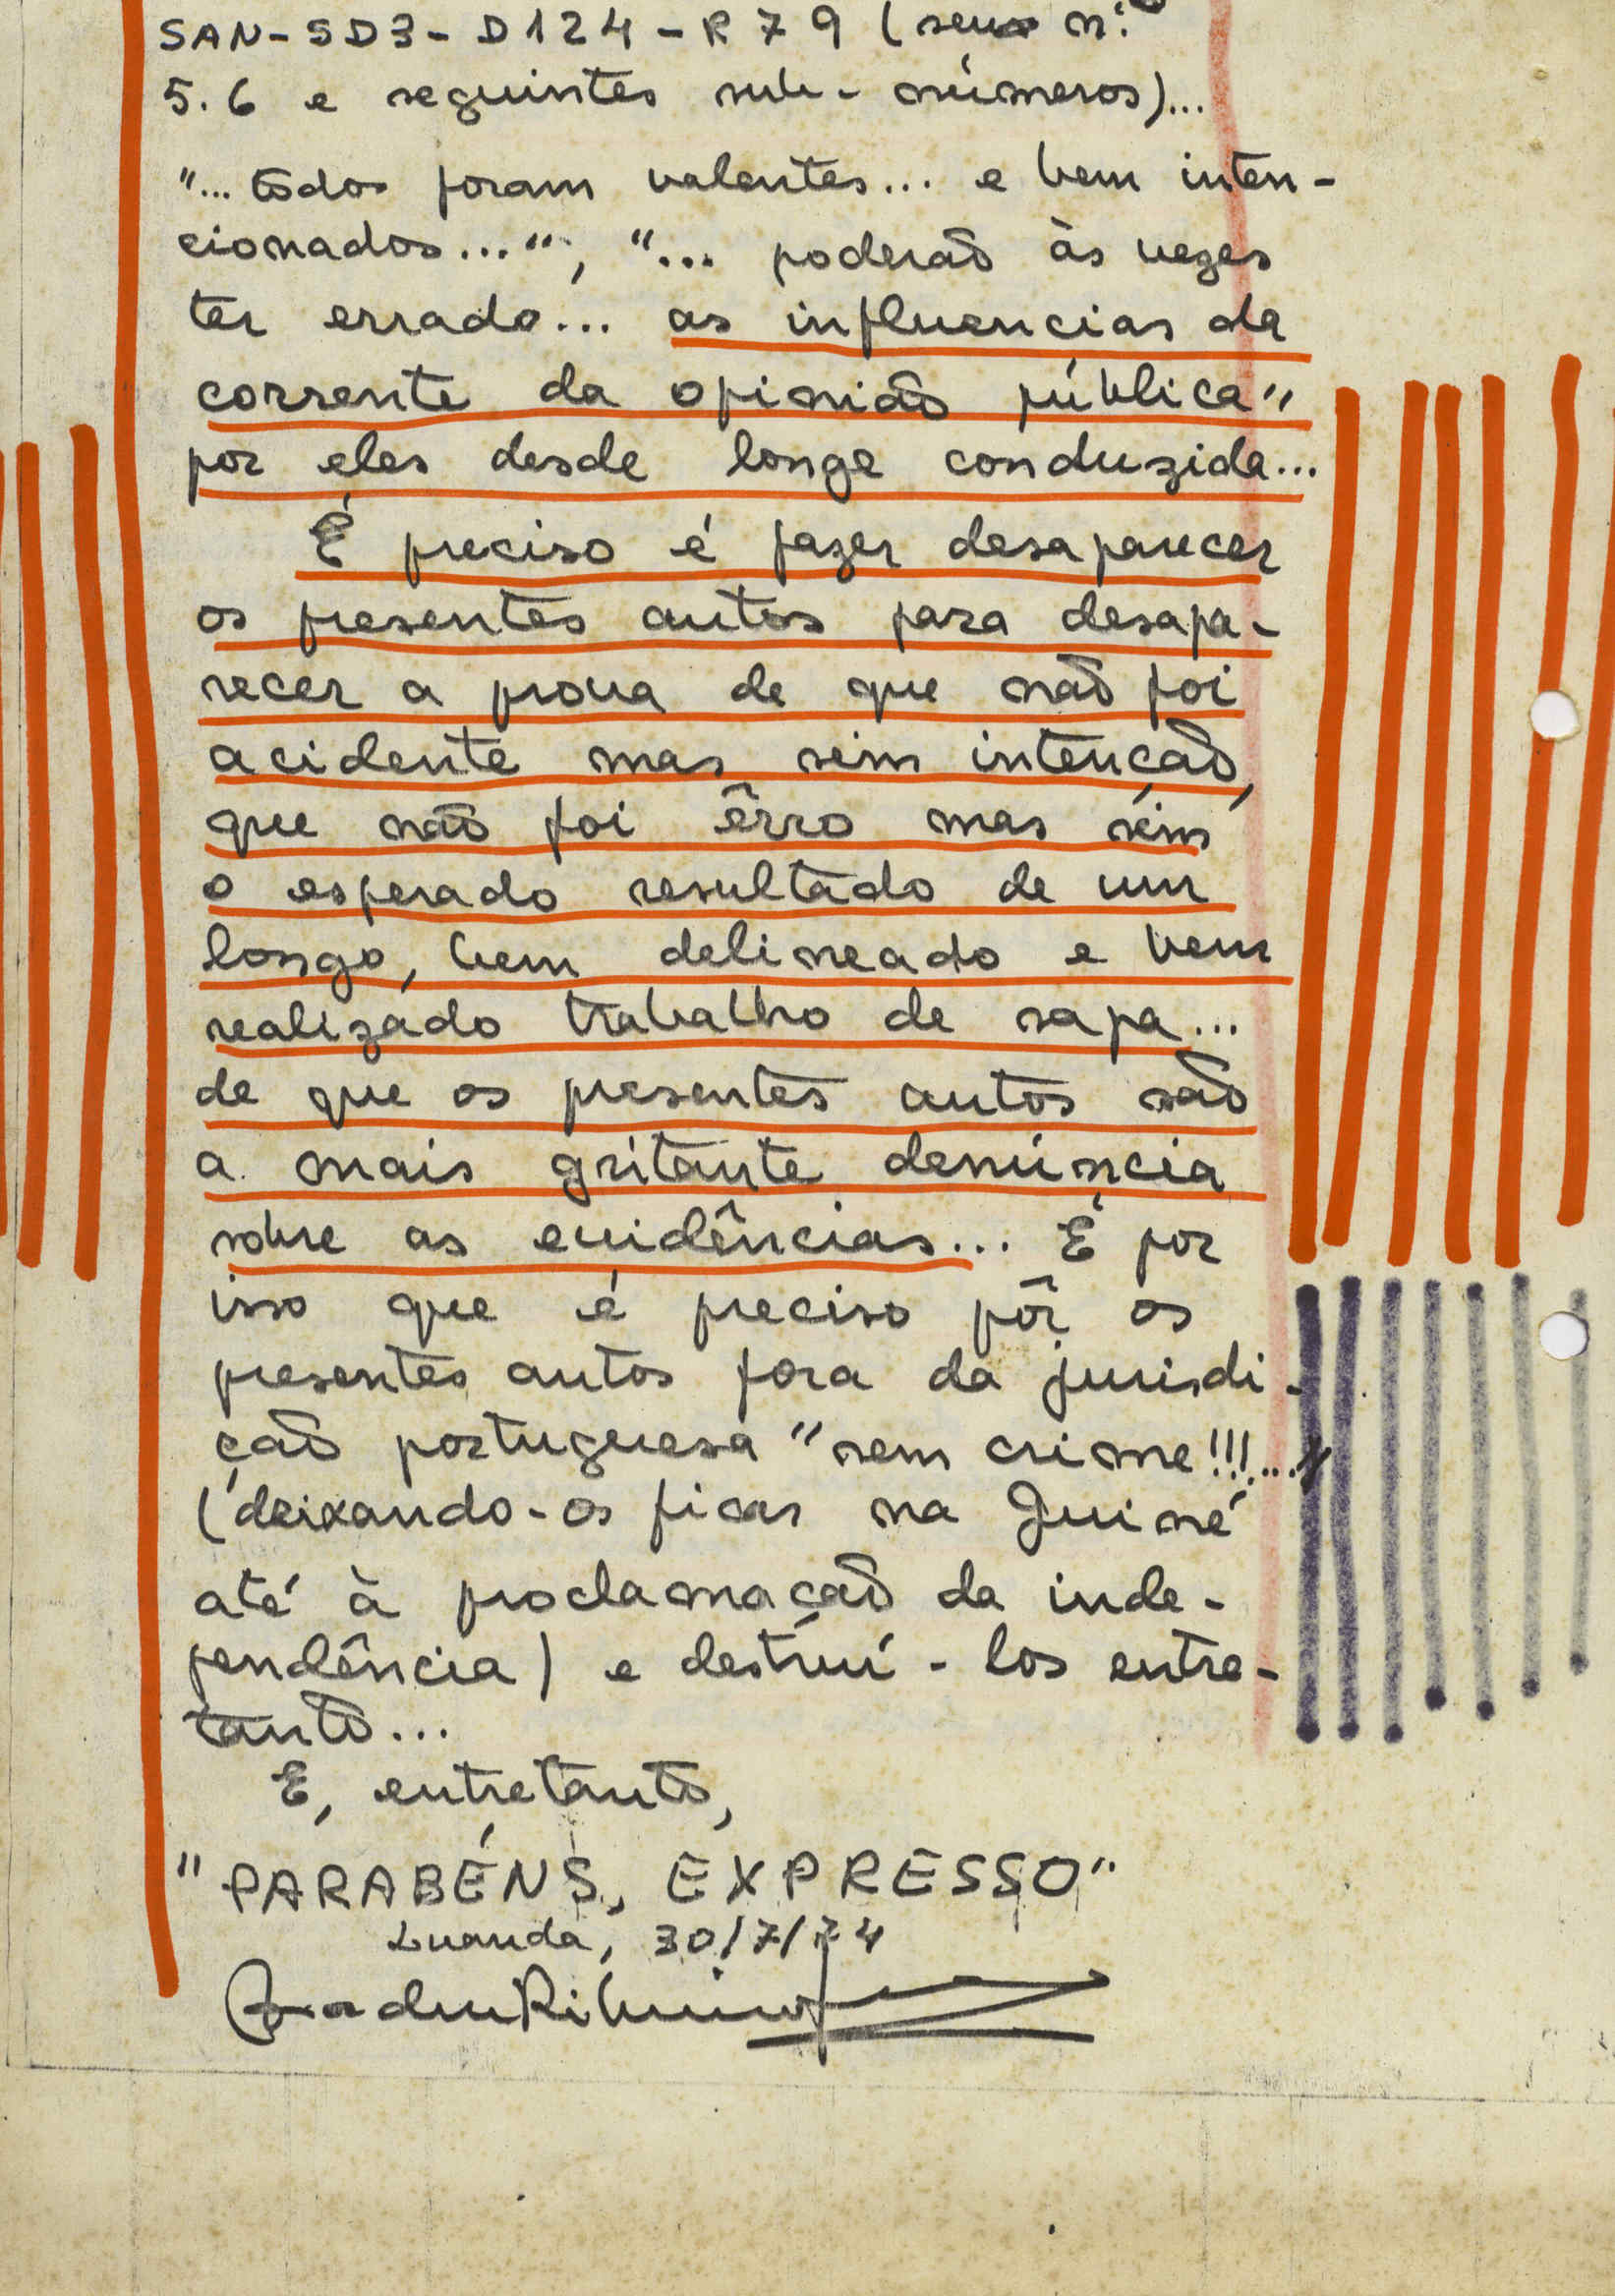 SAN-SD3-D124-R79 (seus n.º
5.6 e seguintes sub-números)...
"... todos foram valentes... e bem inten-
cionados..."; "... poderão às vezes
ter errado... as influencias da
corrente da opinião pública"
por eles desde longe conduzida...
É preciso é fazer desaparecer
os presentes autos para desapa-
recer a prova de que não foi
acidente mas sim intenção,
que não foi êrro mas sim
o esperado resultado de um
longo, bem delineado e bem
realizado trabalho de sapa...
de que os presentes autos são
a mais gritante denúncia
sobre as evidências... É por
isso que é preciso pôr os
presentes autos fora da jurisdi-
ção portuguesa "sem crime!!!..."
(deixando-os ficar na Guiné
até à proclamação da inde-
pendência) e destruí-los entre-
tanto...
E, entretanto,
"PARABÉNS, EXPRESSO"
Luanda, 30/7/74